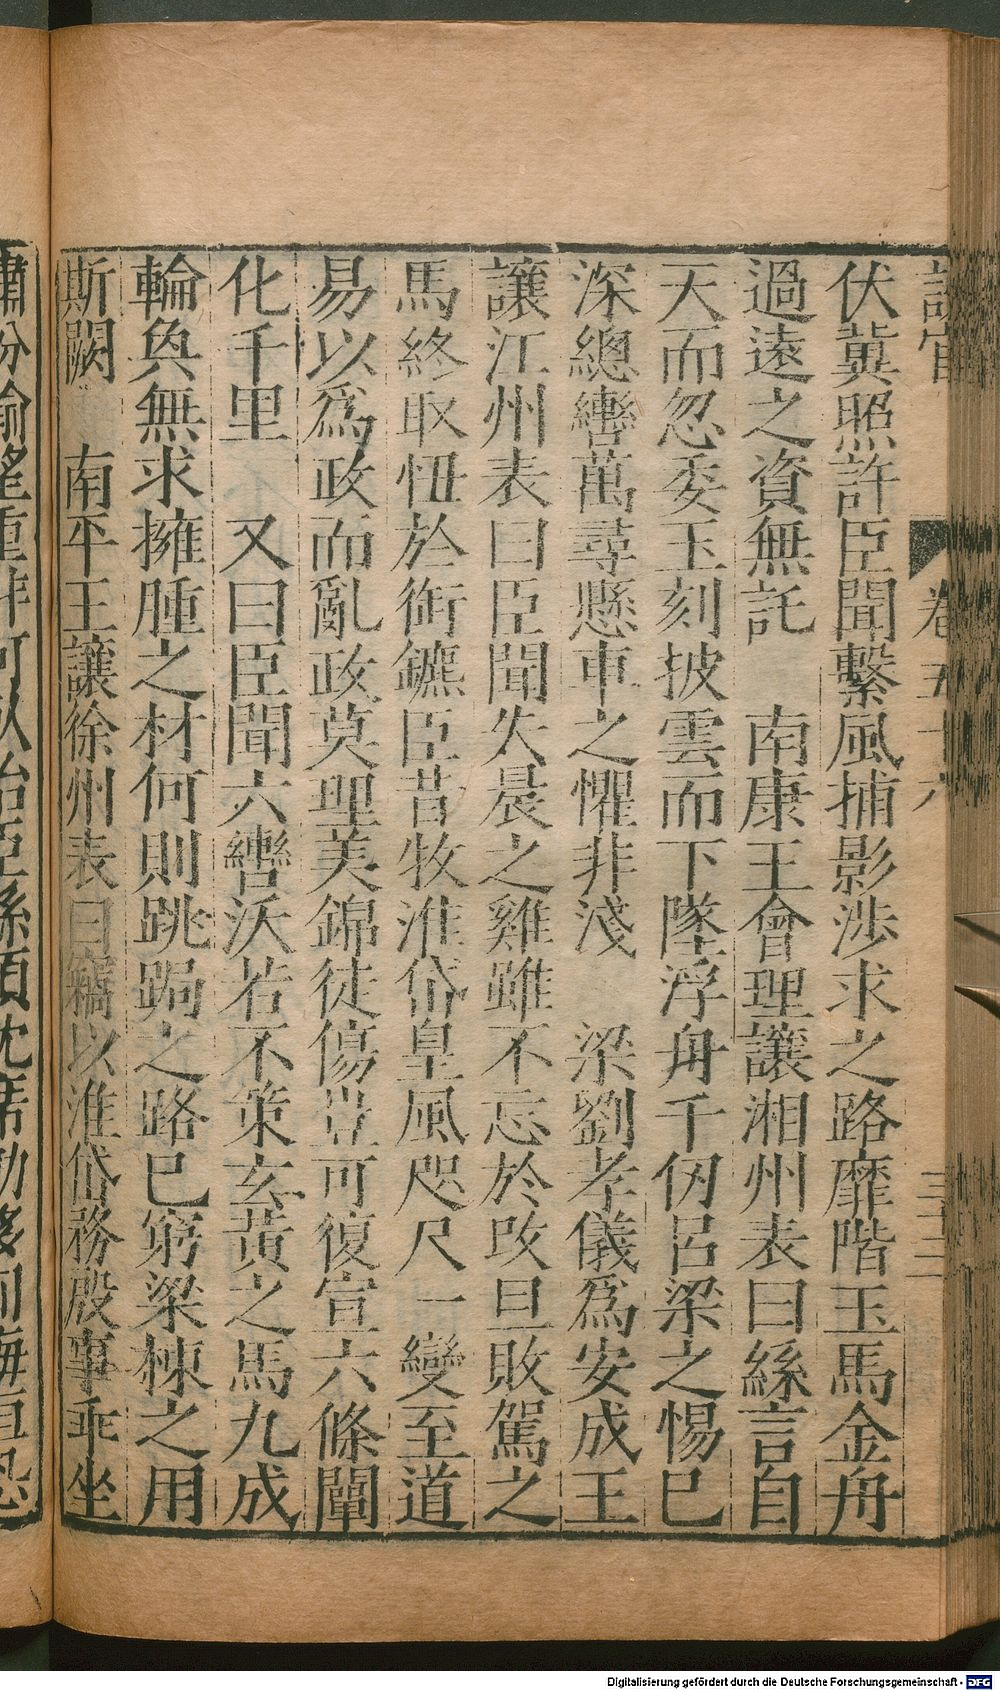 卷五十六
伏冀照許臣聞繫風捕影涉求之路靡階玉馬金舟
過遠之資無託　南康王會理讓湘州表曰絲言自
天而忽委玉刻披雲而下墜浮舟千仞呂梁之惕已
深總轡萬尋懸車之懼非淺　梁劉孝儀爲安成王
讓江州表曰臣聞失晨之雞雖不忘於改旦敗駕之
馬終取忸於銜鑣臣昔牧淮岱皇風咫尺一變至道
易以爲政而亂政莫理美錦徒傷豈可復宣六條闡
化千里　又曰臣聞六轡沃若不策玄黃之馬九成
輪奐無求擁腫之材何則跳跼之路已窮梁棟之用
斯闕　南平王讓徐州表曰竊以淮岱務殷事乖坐
Digitalisierung gefördert durch die Deutsche Forschungsgemeinschaft - DFG